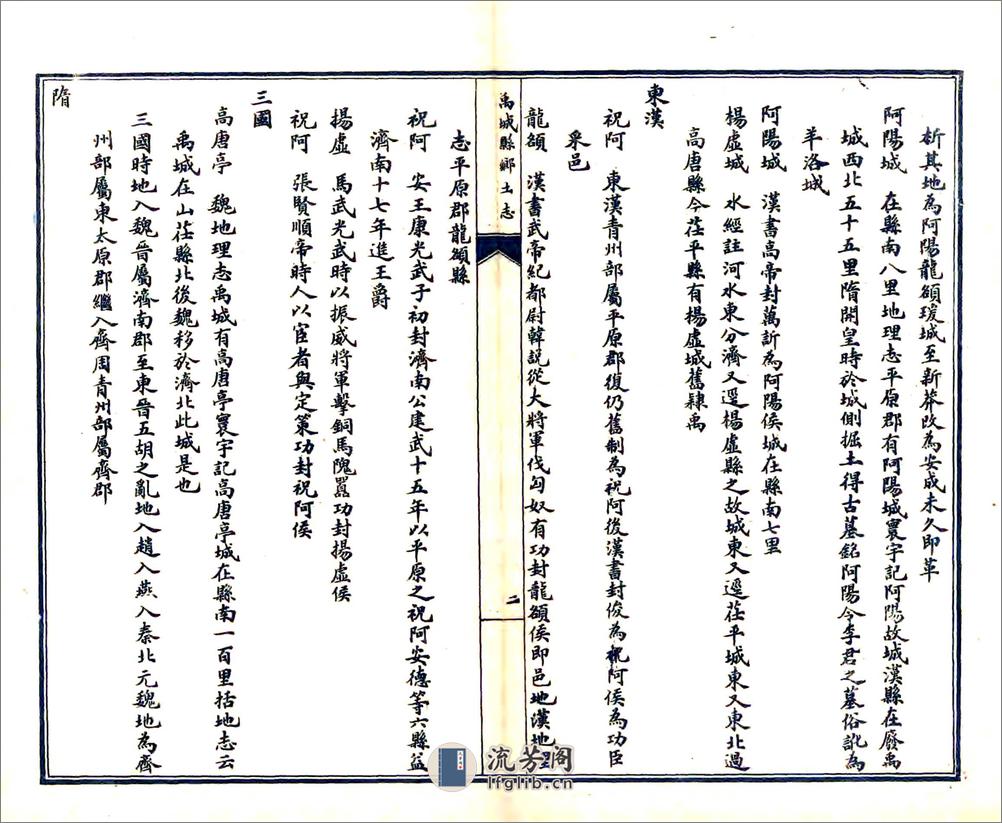 析其地為阿陽龍頟瑗城至新莽改為安成未久即革
阿陽城　在縣南八里地理志平原郡有阿陽城寰宇記阿陽故城漢縣在廢禹
城西北五十五里隋開皇時於城側掘土得古墓銘阿陽令李君之墓俗訛為
羊洛城
阿陽城　漢書高帝封萬訢為阿陽侯城在縣南七里
楊虛城　水經註河水東分濟又逕楊虛縣之故城東又逕茌平城東又東北過
高唐縣今茌平縣有揚虛城舊隸禹
東漢
祝阿　東漢青州部屬平原郡復仍舊制為祝阿後漢書封俊為祝阿侯為功臣
采邑
龍頟　漢書武帝紀都尉韓說從大將軍伐匈奴有功封龍頟侯即邑地漢地理
禹城縣鄉土志
二
志平原郡龍頟縣
祝阿　安王康光武子初封濟南公建武十五年以平原之祝阿安德等六縣益
濟南十七年進王爵
揚虛　馬武光武時以振威將軍擊銅馬隗囂功封揚虛侯
祝阿　張賢順帝時人以宦者與定策功封祝阿侯
三國
高唐亭　魏地理志禹城有高唐亭寰宇記高唐亭城在縣南一百里括地志云
禹城在山茌縣北後魏移於濟北此城是也
三國時地入魏晉屬濟南郡至東晉五胡之亂地入趙入燕入秦北元魏地為齊
州部屬東太原郡繼入齊周青州部屬齊郡
隋
流芳阁
lfglib.cn